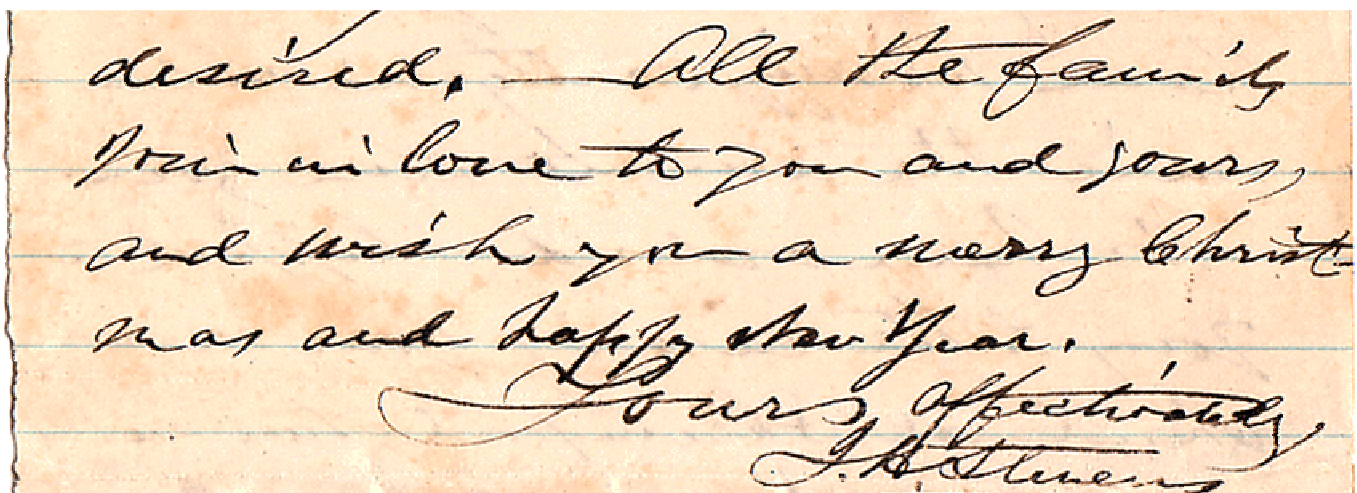 desired. — All the family
join in love to you and yours,
and wish you a merry Christ-
mas and happy New Year.
Yours affectionately,
J. H. Stevens